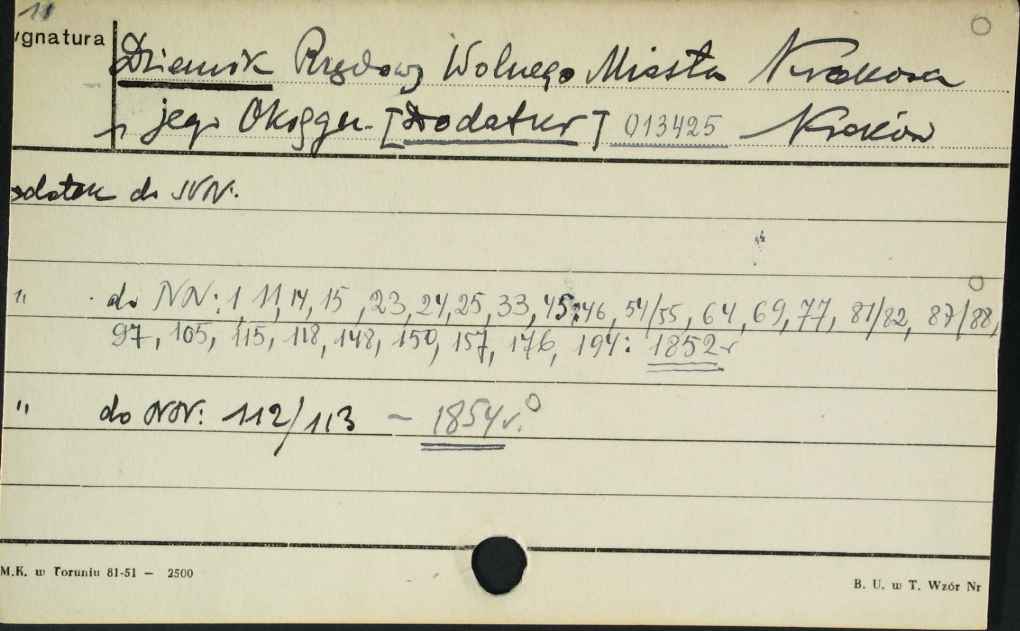 11
ygnatura
Dziennik Rządowy Wolnego Miasta Krakowa
i jego Okręgu. [Dodatki] 013425 Kraków
odatek do NN.
" do NN: 1, 11, 14, 15, 23, 24, 25, 33, 45, 46, 54/55, 64, 69, 77, 81/82, 87/88,
97, 105, 115, 118, 148, 150, 157, 176, 194: 1852 r
" do NN: 112/113 – 1854 r.
M.K. w Toruniu 81-51 — 2500
B. U. w T. Wzór Nr